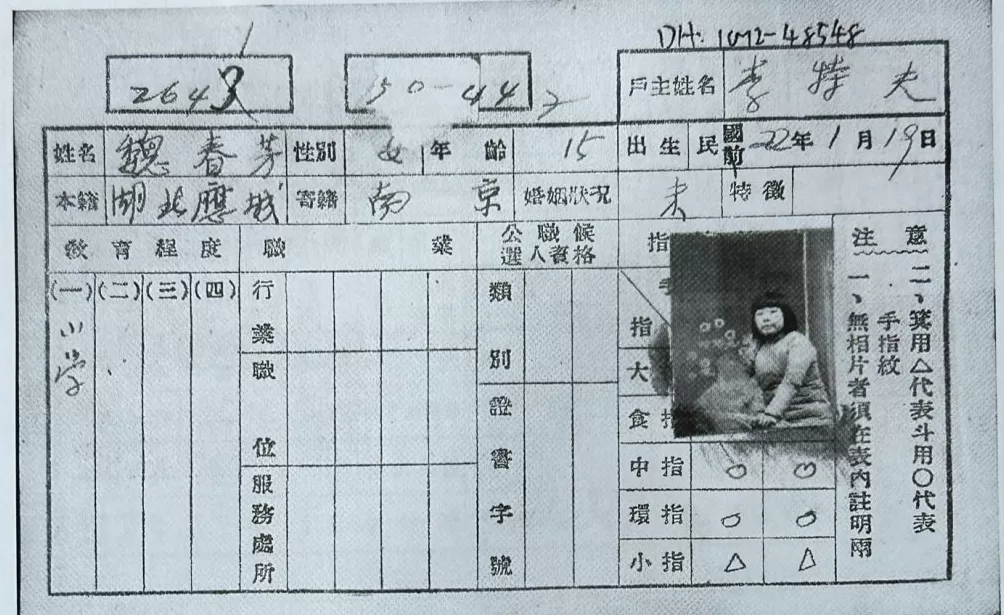 DH: 1012-48548
2643
50-442
戶主姓名 李特夫
姓名 魏春芳 性別 女 年齡 15 出生 民國前 22年1月19日
本籍 湖北應城 寄籍 南京 婚姻狀況 未 特徵
教育程度 職業 公職候選人資格 指
(一)(二)(三)(四)
小学
行業
職位
服務處所
類別
證書字號
手
指
大
食指
中指 ○ ○
環指 ○ ○
小指 △ △
注意
一、無相片者須在表內註明兩手指紋
二、箕用△代表斗用○代表